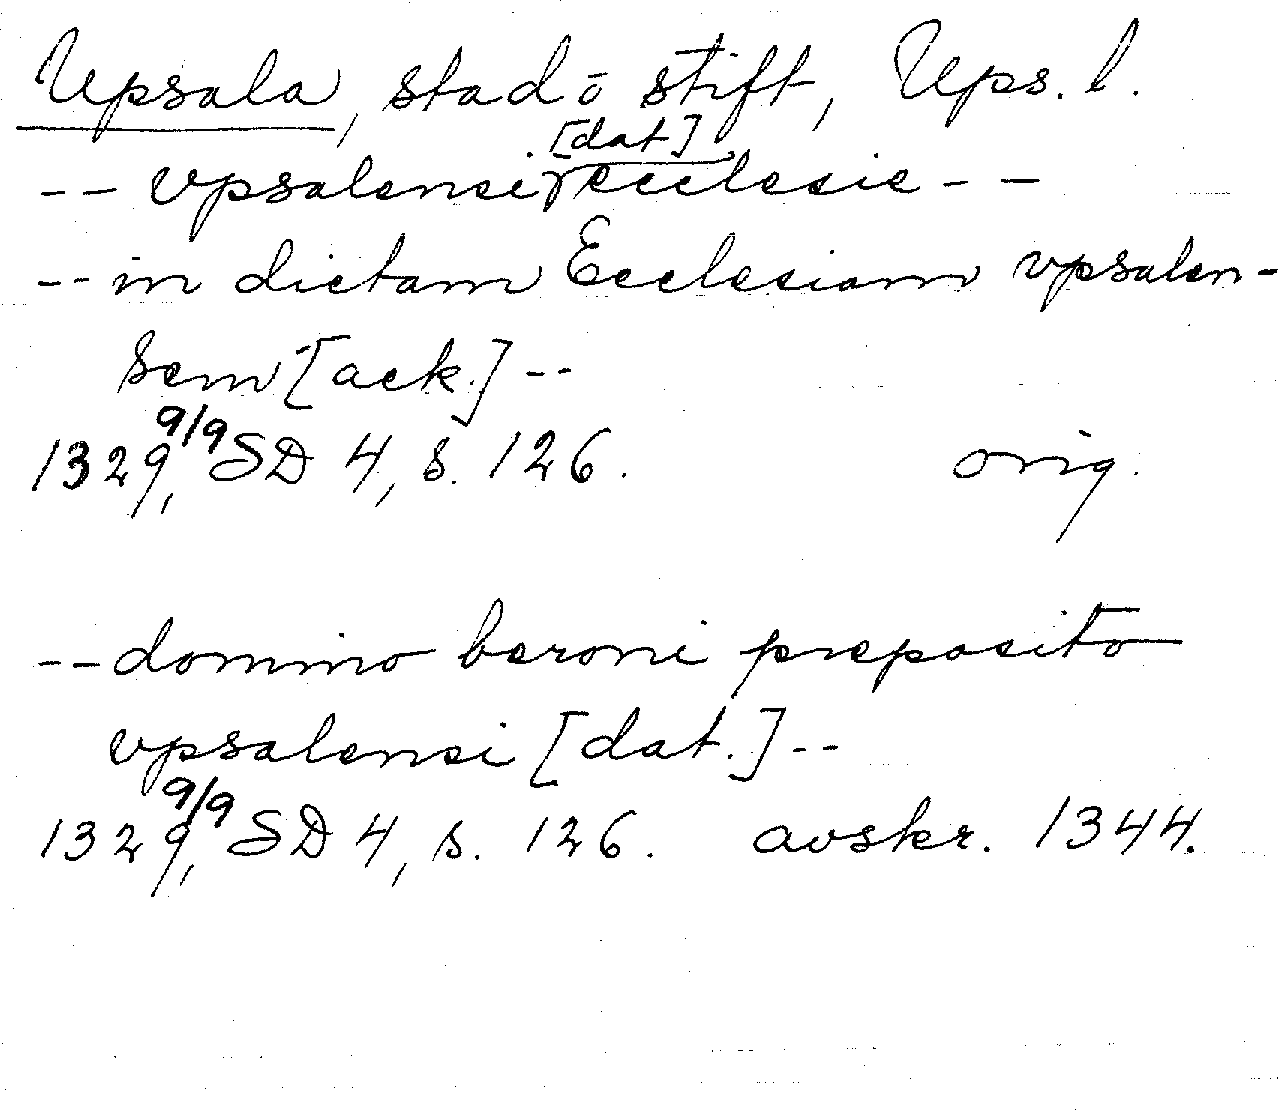 Upsala, stad ō stift, Ups. l.
-- vpsalensi [dat] ecclesie --
-- in dictam Ecclesiam vpsalen-
sem [ack.] --
1329, 9/9 SD 4, s. 126. orig.
-- domino beroni preposito
vpsalensi [dat.] --
1329, 9/9 SD 4, s. 126. avskr. 1344.